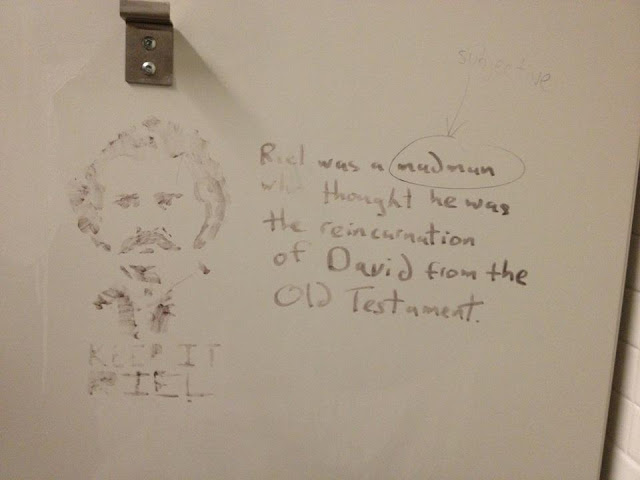 subjective
Riel was a madman
who thought he was
the reincarnation
of David from the
Old Testament.
KEEP IT
RIEL